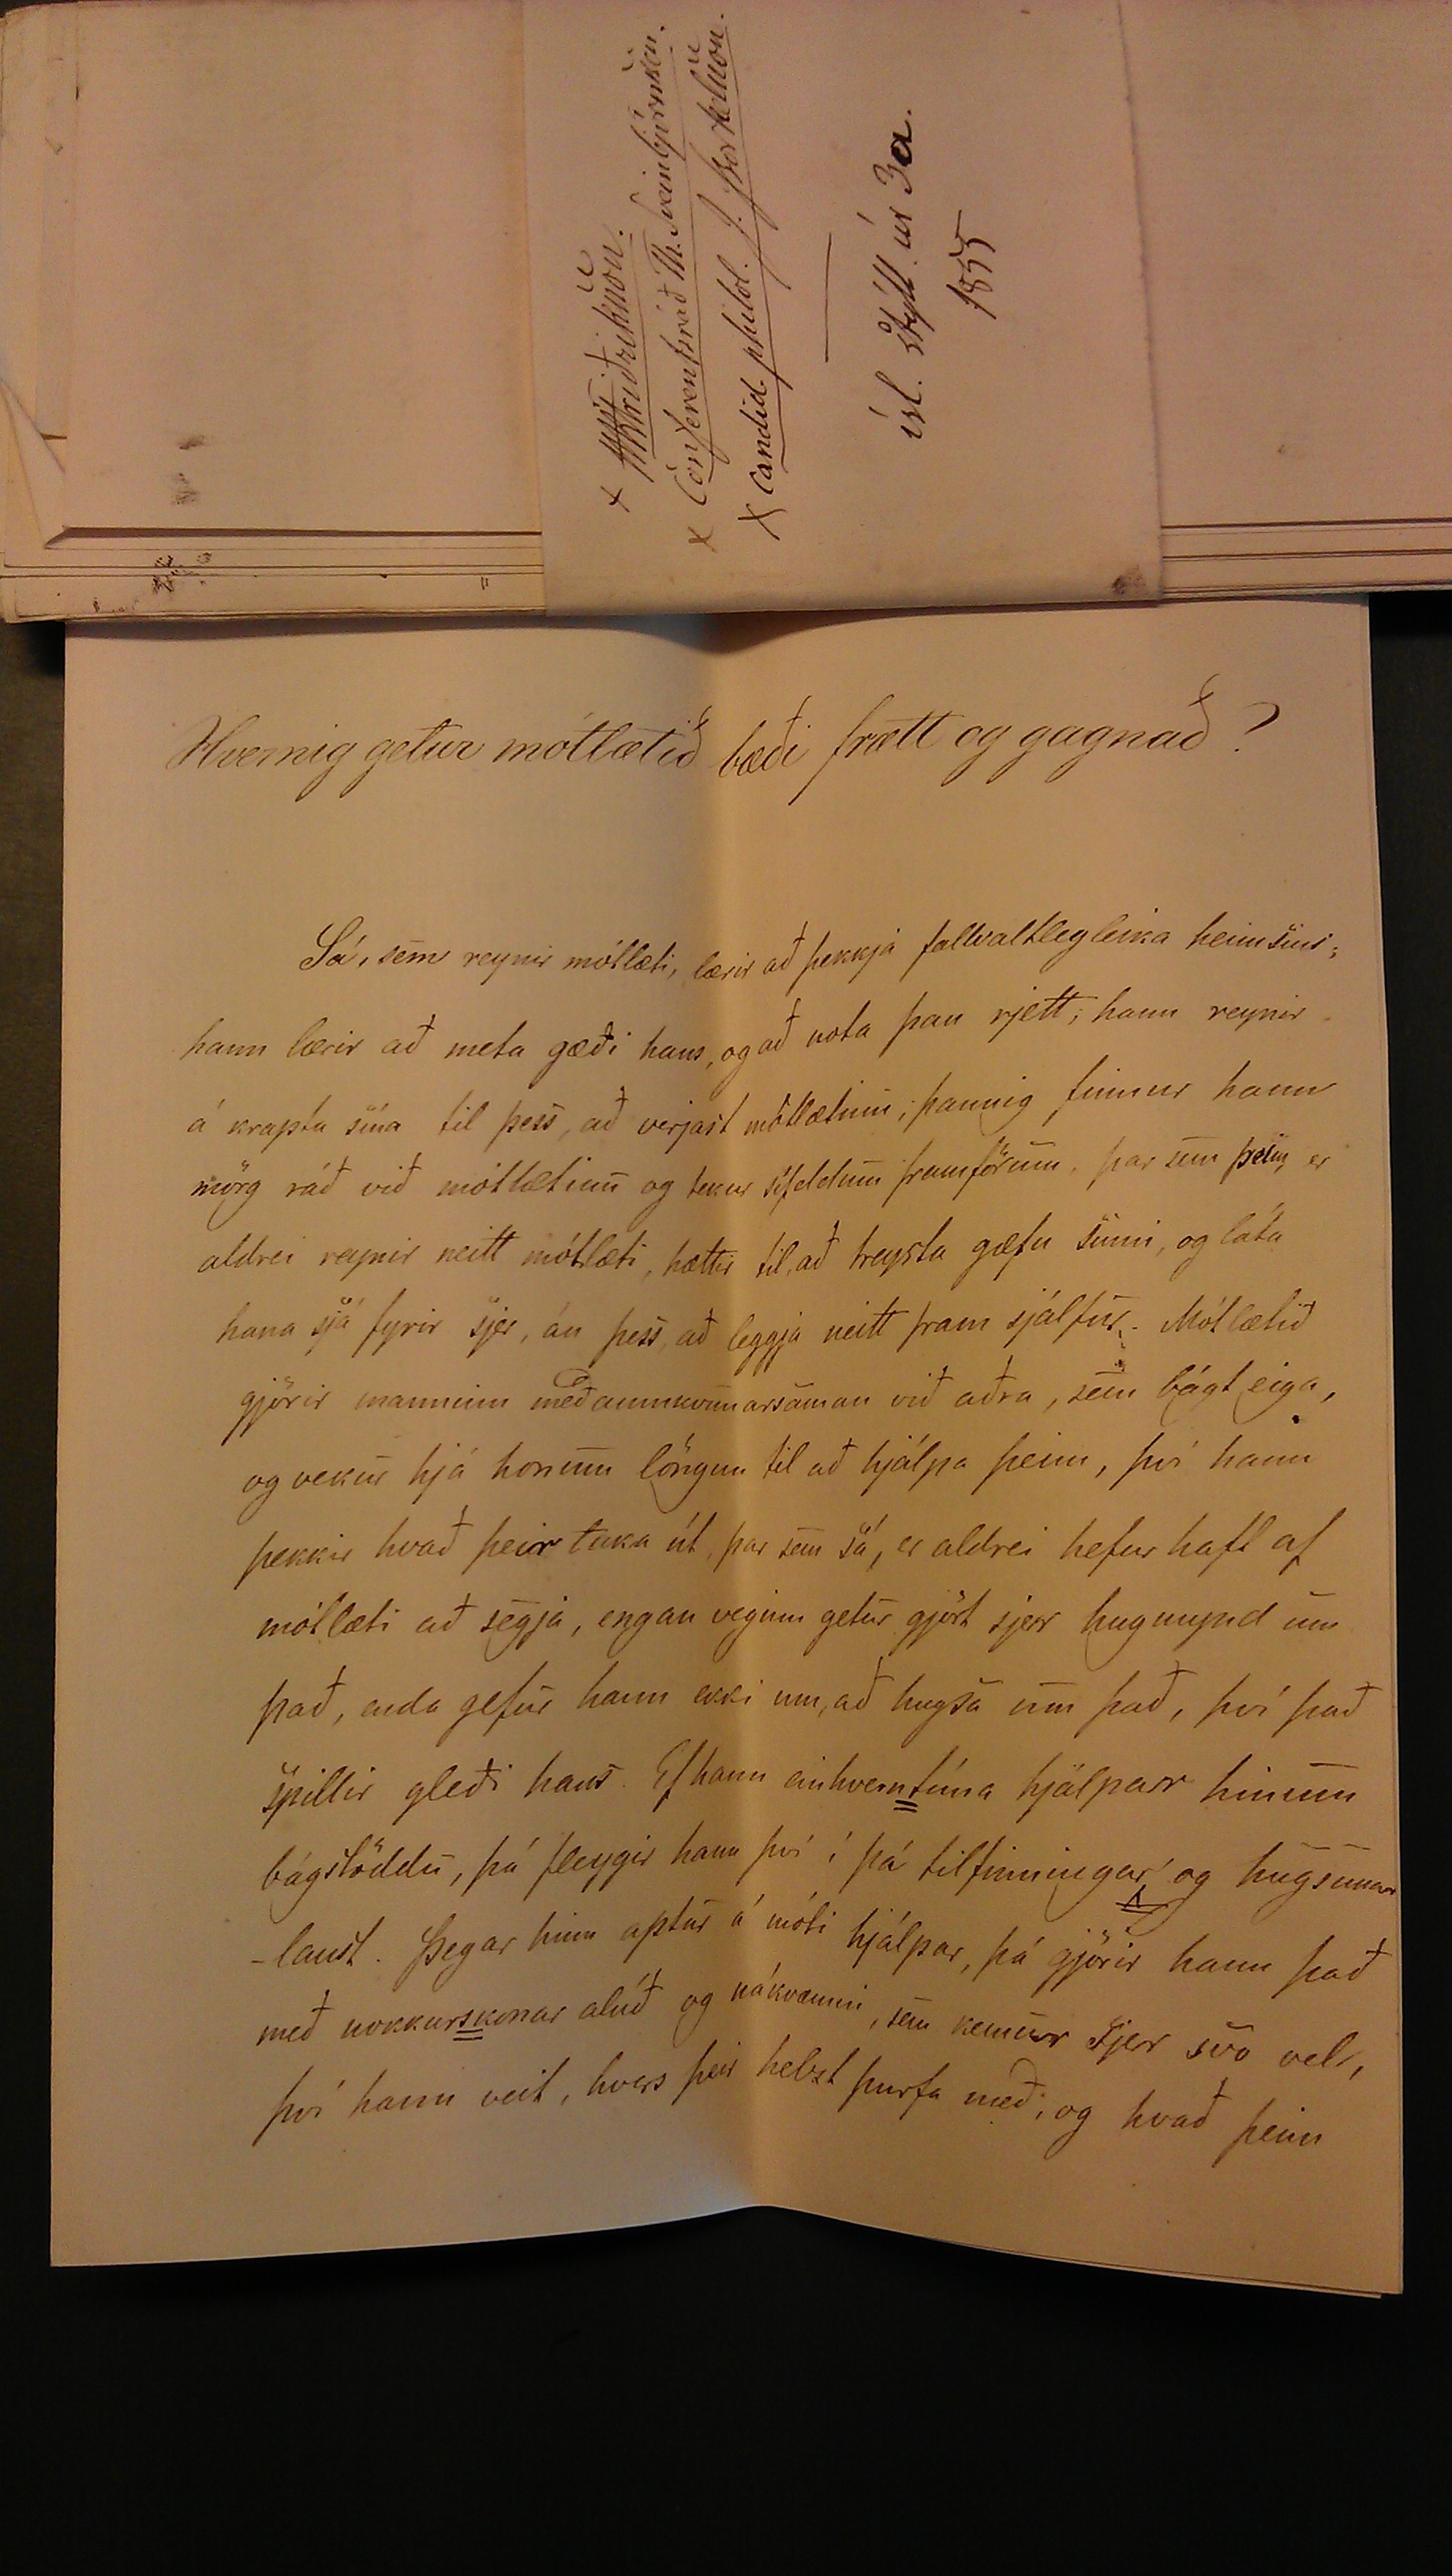 Friðriksson.
× Conferentsráð Th. Sveinbjörnsson.
× Candid. philol. J. Þorkelsson.
ísl. stýll úr 3a.
1855
Hvernig getur mótlætið bæði frætt og gagnað?
Sá, sem reynir mótlæti, lærir að þekkja fallvaltlegleika heimsins;
hann lærir að meta gæði hans, og að nota þau rjett; hann reynir
á krapta sína til þess, að verjast mótlætinu; þannig finnur hann
mörg ráð við mótlætinu og tekur sífeldum framförum, þar sem þeim, er
aldrei reynir neitt mótlæti, hættir til, að treysta gæfu sinni, og láta
hana sjá fyrir sjer, án þess, að leggja neitt fram sjálfur. Mótlætið
gjörir manninn meðaumkvunarsaman við aðra, sem bágt eiga,
og vekur hjá honum löngun til að hjálpa þeim, því hann
þekkir hvað þeir taka út, þar sem sá, er aldrei hefur haft af
mótlæti að segja, engan veginn getur gjört sjer hugmynd um
það, enda gefur hann ekki um, að hugsa um það, því það
spillir gleði hans. Ef hann einhverntíma hjálpar hinum
bágstöddu, þá fleygir hann því í þá tilfinningar og hugsunar
-laust. Þegar hinn aptur á móti hjálpar, þá gjörir hann það
með nokkurskonar alúð og nákvæmni, sem kemur sjer svo vel,
því hann veit, hvers þeir helzt þurfa með, og hvað þeim